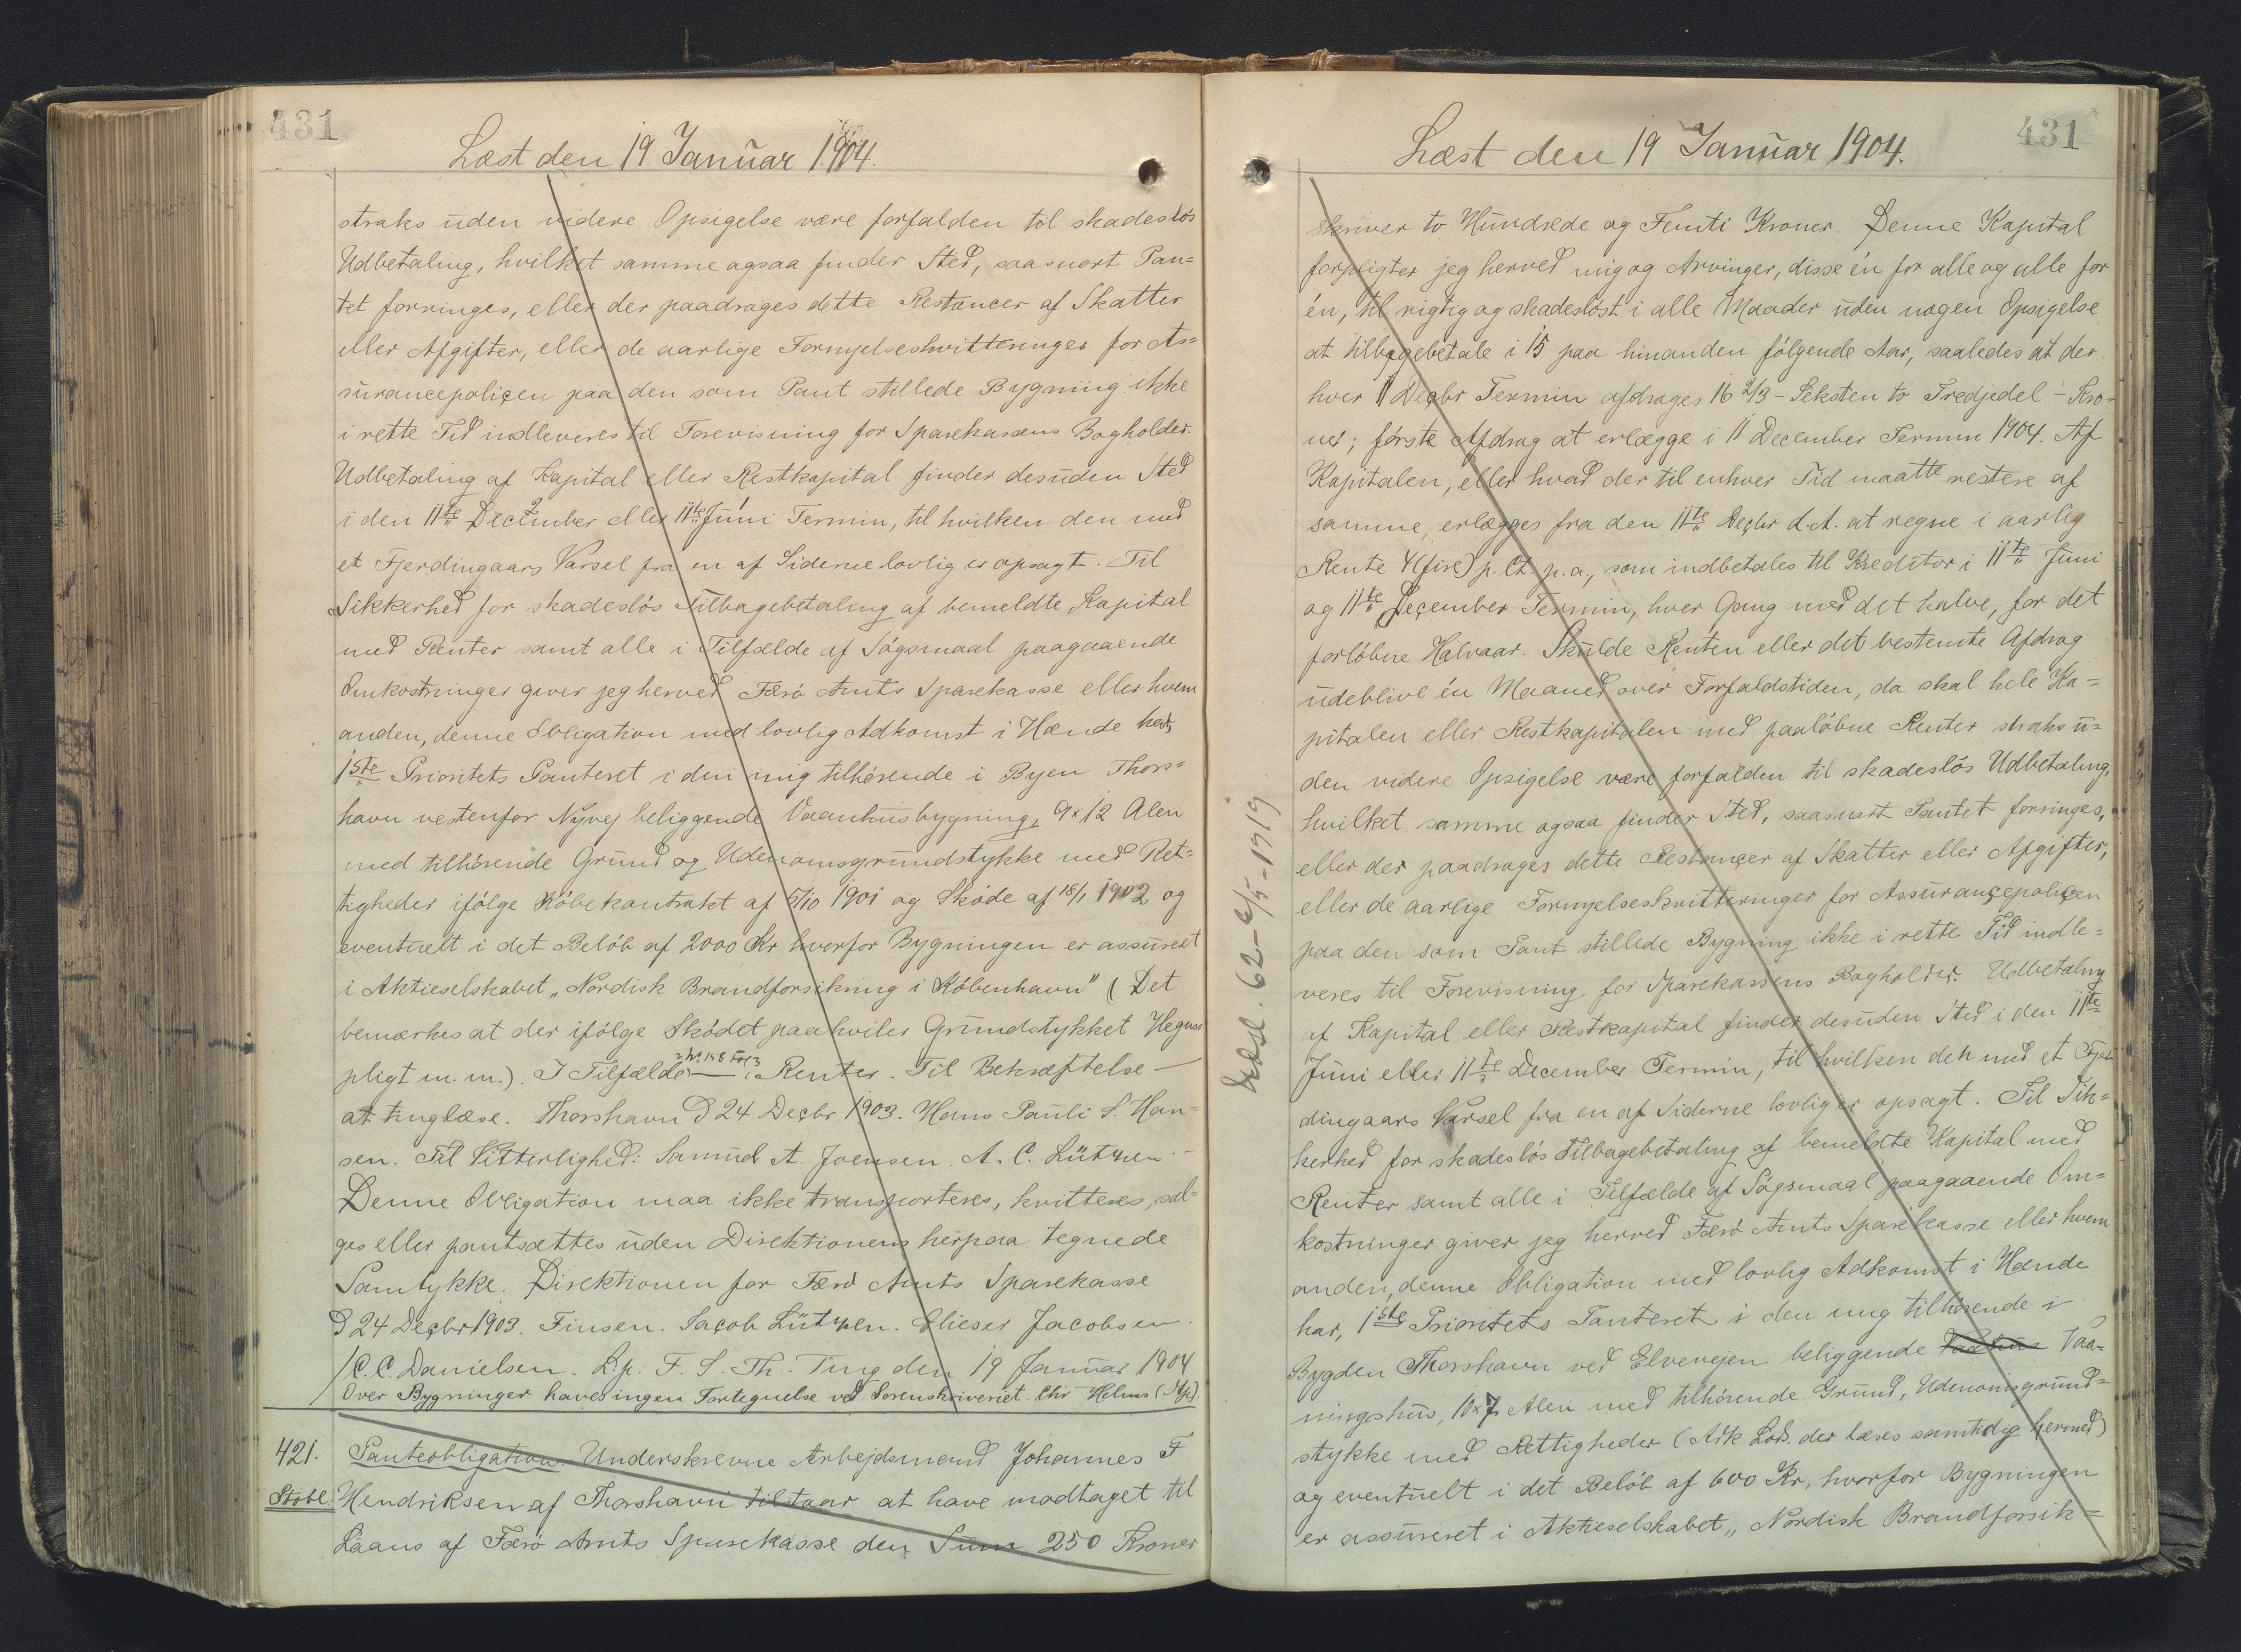 431
Læst den 19 Januar 1904.
straks uden videre Opsigelse være forfalden til skadesløs
Udbetaling, hvilket samme ogsaa finder Sted, saasnart Pan=
tet forringes, eller der paadrages dette Restancer af Skatter
eller Afgifter, eller de aarlige Fornyelseskvitteringer for As=
surancepoliçen paa den som Pant stillede Bygning ikke
i rette Tid indleveres til Forevisning for Sparekassens Bogholder.
Udbetaling af Kapital eller Restkapital finder desuden Sted
i den 11te December eller 11te Juni Termin, til hvilken den med
et Fjerdingaars Varsel fra en af Siderne lovlig er opsagt. Til
Sikkerhed for skadesløs Tilbagebetaling af bemeldte Kapital
med Renter samt alle i Tilfælde af Søgsmaal paagaaende
Omkostninger giver jeg herved Færø Amts Sparekasse eller hvem
anden, denne Obligation med lovlig Adkomst i Hænde har,
1ste Prioritets Panteret i den mig tilhørende i Byen Thors=
havn vestenfor Nÿvej beliggende Vaanhusbygning, 9 x 12 Alen
med tilhørende Grund og Udenomsgrundstykke med Ret=
tigheder ifølge Købekontrakt af 5/10 1901 og Skøde af 18/1 1902 og
eventuelt i det Beløb af 2000 Kr hvorfor Bygningen er assureret
i Aktieselskabet „Nordisk Brandforsikring i København" (Det
bemærkes at der ifølge Skødet paahviler Grundstykket Hegns
pligt m.m.). I Tilfælde — Renter. Til Bekræftelse —
at tinglæse. Thorshavn D 24 Decbr 1903. Hans Pauli S. Han=
sen. Til Vitterlighed: Samuel A. Joensen. A. C. Lützen. -
Denne Obligation maa ikke transporteres, kvitteres, sæl=
ges eller pantsættes uden Direktionens herpaa tegnede
Samtykke. Direktionen for Færø Amts Sparekasse
D 24 Deçbr 1903. Finsen. Jaçob Lützen. Elieser Jacobsen.
/C. C. Danielsen. L. p. F. S. Th. Ting den 19 Januar 1904
Over Bygninger haves ingen Fortegnelse ved Sorenskriveriet. Chr Helms
421. Panteobligation. Underskrevne Arbejdsmand Johannes F
Hendriksen af Thorshavn tilstaar at have modtaget til
Laans af Færø Amts Sparekasse den Sum 250 Kroner
431
Læst den 19 Januar 1904.
skriver to Hundrede og Femti Kroner. Denne Kapital
forpligter jeg herved mig og Arvinger, disse én for alle og alle for
én, til rigtig og skadesløst i alle Maader uden nogen Opsigelse
at tilbagebetale i 15 paa hinanden følgende Aar, saaledes at der
hver 11 Deçbr Termin afdrages 16 2/3 - Seksten to Tredjedel - Kro-
ner; første Afdrag at erlægge i 11 December Termin 1904. Af
Kapitalen, eller hvad der til enhver Tid maatte restere af
samme, erlægges fra den 11te Deçbr d. A. at regne i aarlig
Rente 4 (fire) p. Ct. p. a., som indbetales til Kreditor i 11te Juni
og 11te Deçember Termin, hver Gang med det halve, for det
forløbne Halvaar. Skulde Renten eller det bestemte Afdrag
udeblive én Maaned over Forfaldstiden, da skal hele Ka=
pitalen eller Restkapitalen med paaløbne Renter straks u=
den videre Opsigelse være forfalden til skadesløs Udbetaling,
hvilket samme ogsaa finder Sted, saasnart Pantet forringes,
eller der paadrages dette Restançer af Skatter eller Afgifter,
eller de aarlige Fornyelseskvitteringer for Assurançepoliçen
paa den som Pant stillede Bygning ikke i rette Tid indle=
veres til Forevisning for Sparekassens Bogholder. Udbetaling
af Kapital eller Restkapital finder desuden Sted i den 11te
Juni eller 11te December Termin, til hvilken den med et Fjer
dingaars Varsel fra en af Siderne lovlig er opsagt. Til Sik=
kerhed for skadesløs Tilbagebetaling af bemeldte Kapital med
Renter samt alle i Tilfælde af Søgsmaal paagaaende Om=
kostninger giver jeg herved Færø Amts Sparekasse eller hvem
anden, denne Obligation med lovlig Adkomst i Hænde
har, 1ste Prioritets Panteret i den mig tilhørende i
Bygden Thorshavn ved Elvevejen beliggende Vaa-
ningshus, 10 x 7 Alen med tilhørende Grund, Udenomsgrund=
stykke med Rettigheder (Adk. der læses samtidig hermed)
og eventuelt i det Beløb af 600 Kr, hvorfor Bygningen
er assureret i Aktieselskabet „Nordisk Brandforsik=